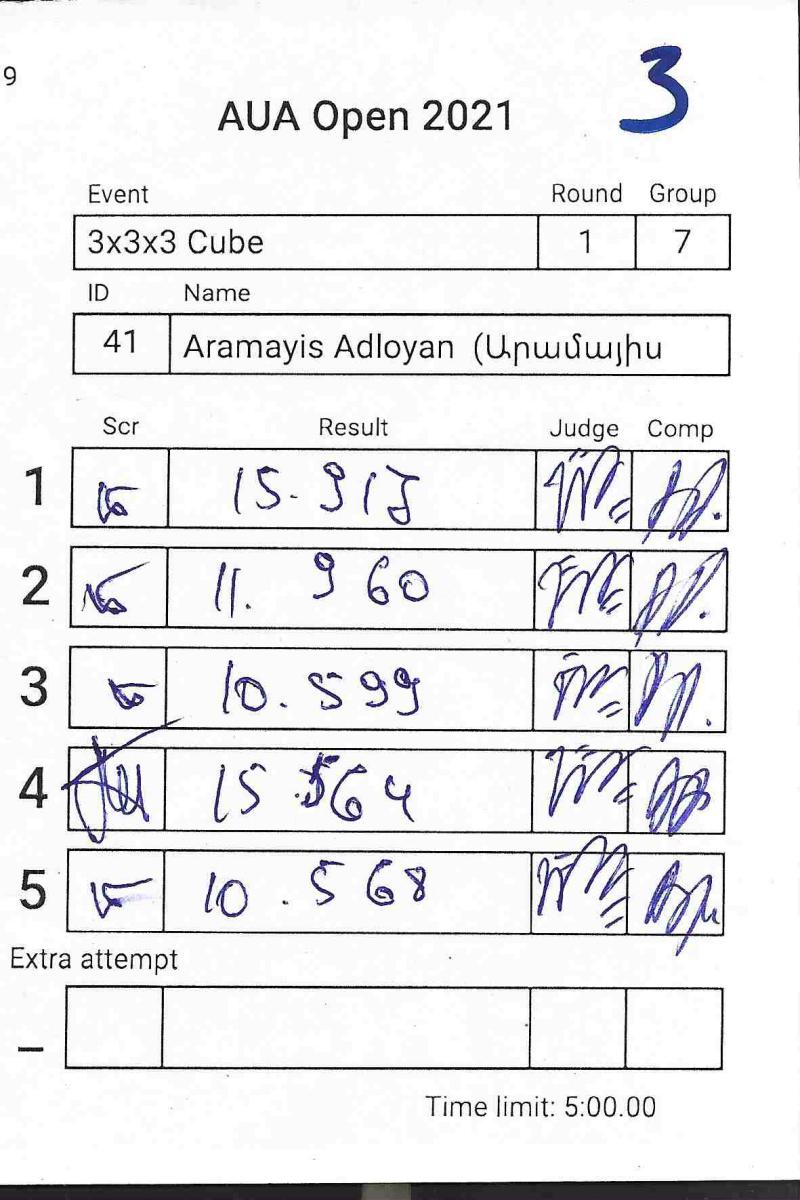 9
3
AUA Open 2021
Event Round Group
3x3x3 Cube 1 7
ID Name
41 Aramayis Adloyan (Արամայիս
Scr Result Judge Comp
1 15.917
2 11.960
3 10.599
4 15.564
5 10.568
Extra attempt
_
Time limit: 5:00.00